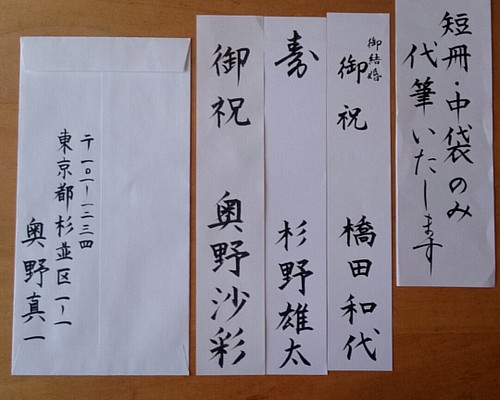 短冊・中袋のみ
代筆いたします
御結婚
御祝
橋田和代
寿
杉野雄太
御祝
奥野沙彩
〒一〇一-一二三四
東京都杉並区一-一
奥野真一